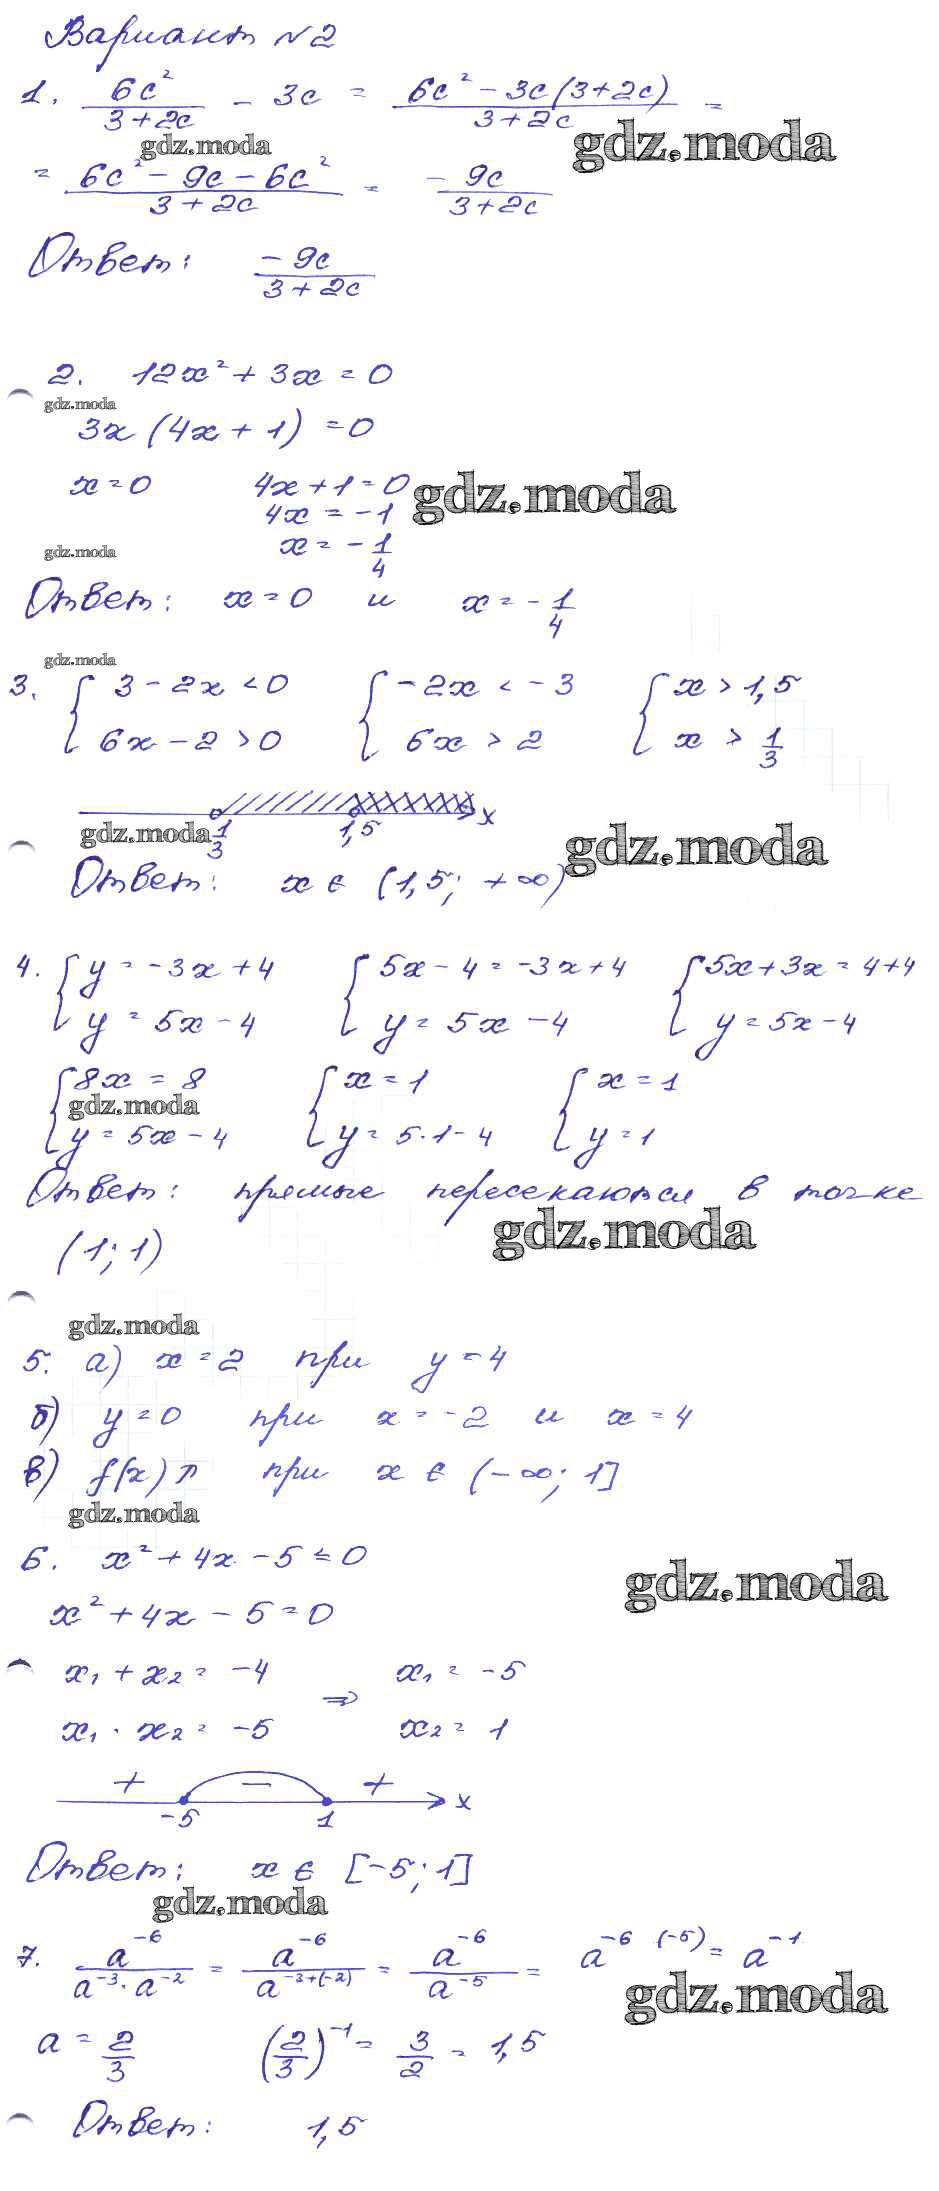 Вариант №2
1. 6c²/(3+2c) - 3c = (6c² - 3c(3+2c))/(3+2c) =
gdz.moda gdz.moda
= (6c² - 9c - 6c²)/(3+2c) = -9c/(3+2c)
Ответ: -9c/(3+2c)
2. 12x² + 3x = 0
gdz.moda
3x (4x + 1) = 0
x = 0 4x + 1 = 0 gdz.moda
4x = -1
gdz.moda x = -1/4
Ответ: x = 0 и x = -1/4
gdz.moda
3. { 3 - 2x < 0 { -2x < -3 { x > 1,5
6x - 2 > 0 6x > 2 x > 1/3
x
gdz.moda 1/3 1,5 gdz.moda
Ответ: x ∈ (1,5; +∞)
4. { y = -3x + 4 { 5x - 4 = -3x + 4 { 5x + 3x = 4 + 4
y = 5x - 4 y = 5x - 4 y = 5x - 4
{ 8x = 8 { x = 1 { x = 1
gdz.moda
y = 5x - 4 y = 5·1 - 4 y = 1
Ответ: прямые пересекаются в точке
gdz.moda
(1; 1)
gdz.moda
5. а) x = 2 при y = 4
б) y = 0 при x = -2 и x = 4
в) f(x) ↗ при x ∈ (-∞; 1]
gdz.moda
6. x² + 4x - 5 ≤ 0
gdz.moda
x² + 4x - 5 = 0
x₁ + x₂ = -4 ⇒ x₁ = -5
x₁ · x₂ = -5 x₂ = 1
+ - + x
-5 1
Ответ: x ∈ [-5; 1]
gdz.moda
7. a⁻⁶/(a⁻³ · a⁻²) = a⁻⁶/a⁻³⁺⁽⁻²⁾ = a⁻⁶/a⁻⁵ = a⁻⁶ ⁽⁻⁵⁾ = a⁻¹
gdz.moda
a = 2/3 (2/3)⁻¹ = 3/2 = 1,5
Ответ: 1,5